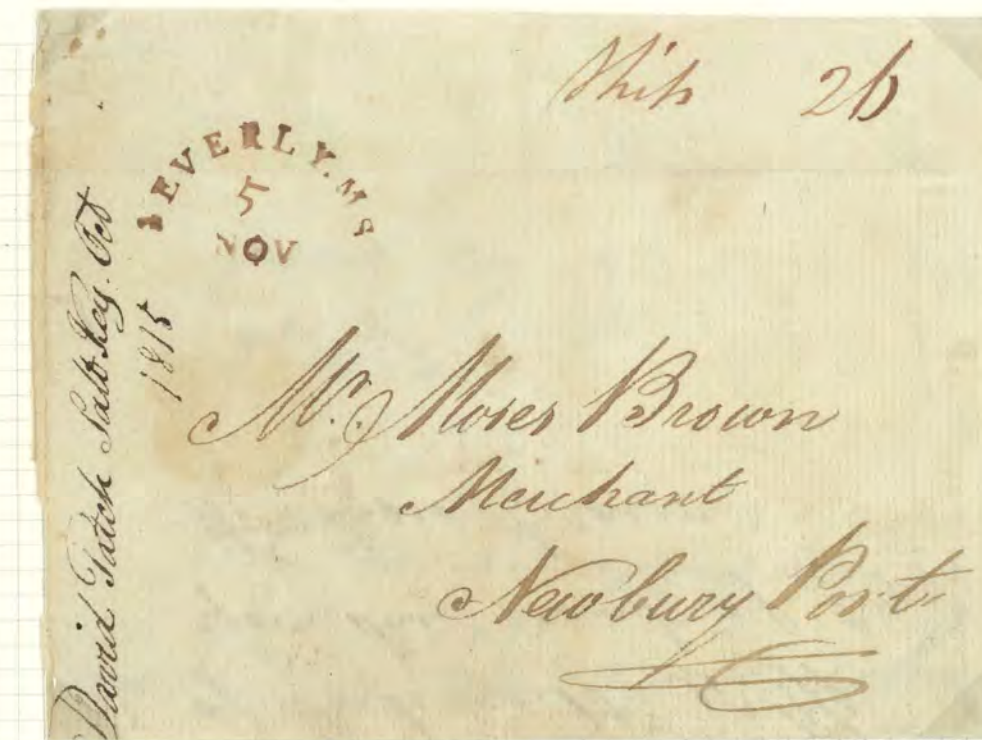 Ship 26
BEVERLY. MS
5
NOV
David Patch Salt Key. Oct
1815
Mr. Moses Brown
Merchant
Newbury Port